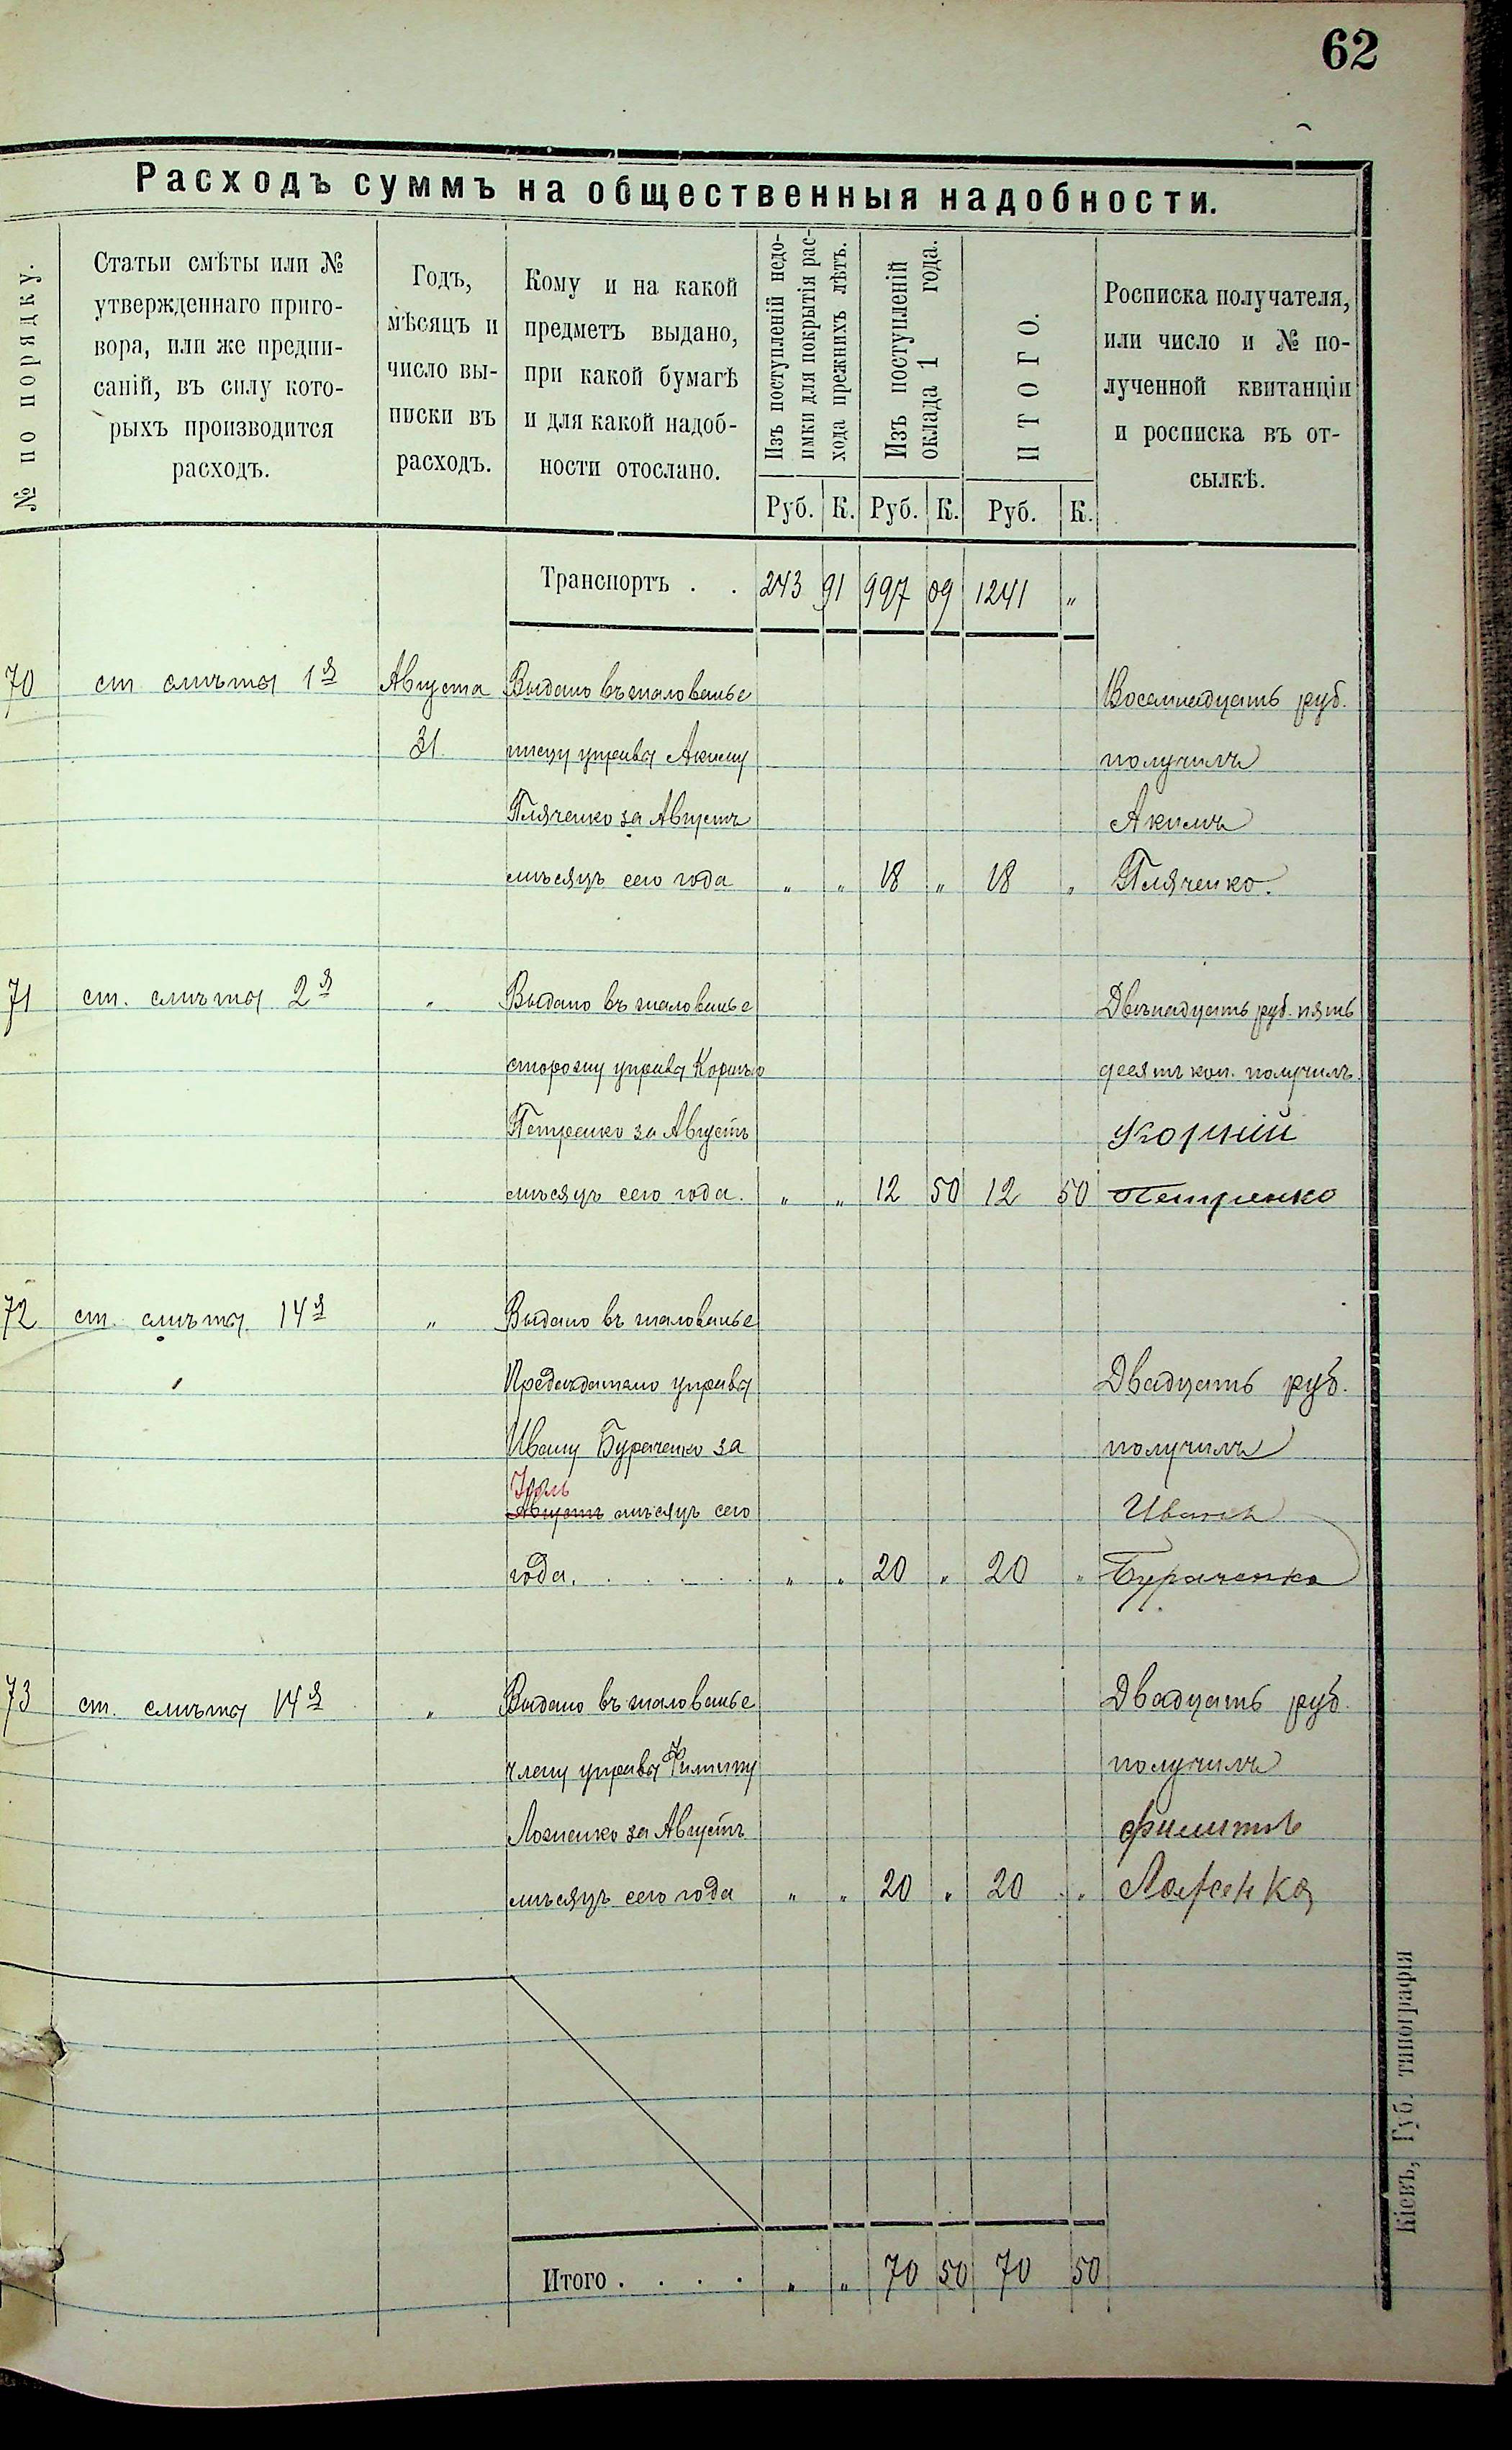 62
Расходъ суммъ на общественныя надобности.
№ по порядку.
Статьи смѣты или №
утвержденнаго приго-
вора, или же предпи-
саній, въ силу кото-
рыхъ производится
расходъ.
Годъ,
мѣсяцъ и
число вы-
писки въ
расходъ.
Кому и на какой
предметъ выдано,
при какой бумагѣ
и для какой надоб-
ности отослано.
Изъ поступленій недо-
имки для покрытія рас-
хода прежнихъ лѣтъ.
Изъ поступленій
оклада 1 года.
ИТОГО.
Росписка получателя,
или число и № по-
лученной квитанціи
и росписка въ от-
сылкѣ.
Руб. К. Руб. К. Руб. К.
Транспортъ . . 243 91 997 09 1241 "
70 ст смѣты 1я Августа Выдано въ жалованье Восемнадцать руб.
31 писцу управы Акиму получилъ
Пляченко за Августъ Акимъ
мѣсяцъ сего года " " 18 " 18 " Пляченко.
71 ст. смѣты 2я " Выдано въ жалованье Двѣнадцать руб. пять
сторожу управы Корнѣю десятъ коп. получилъ
Петренко за Августъ Корній
мѣсяцъ сего года. " " 12 50 12 50 Петренко
72 ст. смѣты 14я " Выдано въ жалованье
Предсѣдателю управы Двадцать руб.
Ивану Бураченко за получилъ
Іюль
Августъ мѣсяцъ сего Иванъ
года. . . . . . " " 20 " 20 " Бураченко
73 ст. смѣты 14я " Выдано въ жалованье Двадцать руб.
члену управы Филипу получилъ
Ложенко за Августъ Филипъ
мѣсяцъ сего года " " 20 " 20 " Ложенко
Итого . . . . " " 70 50 70 50
Кіевъ, Губ. типографія